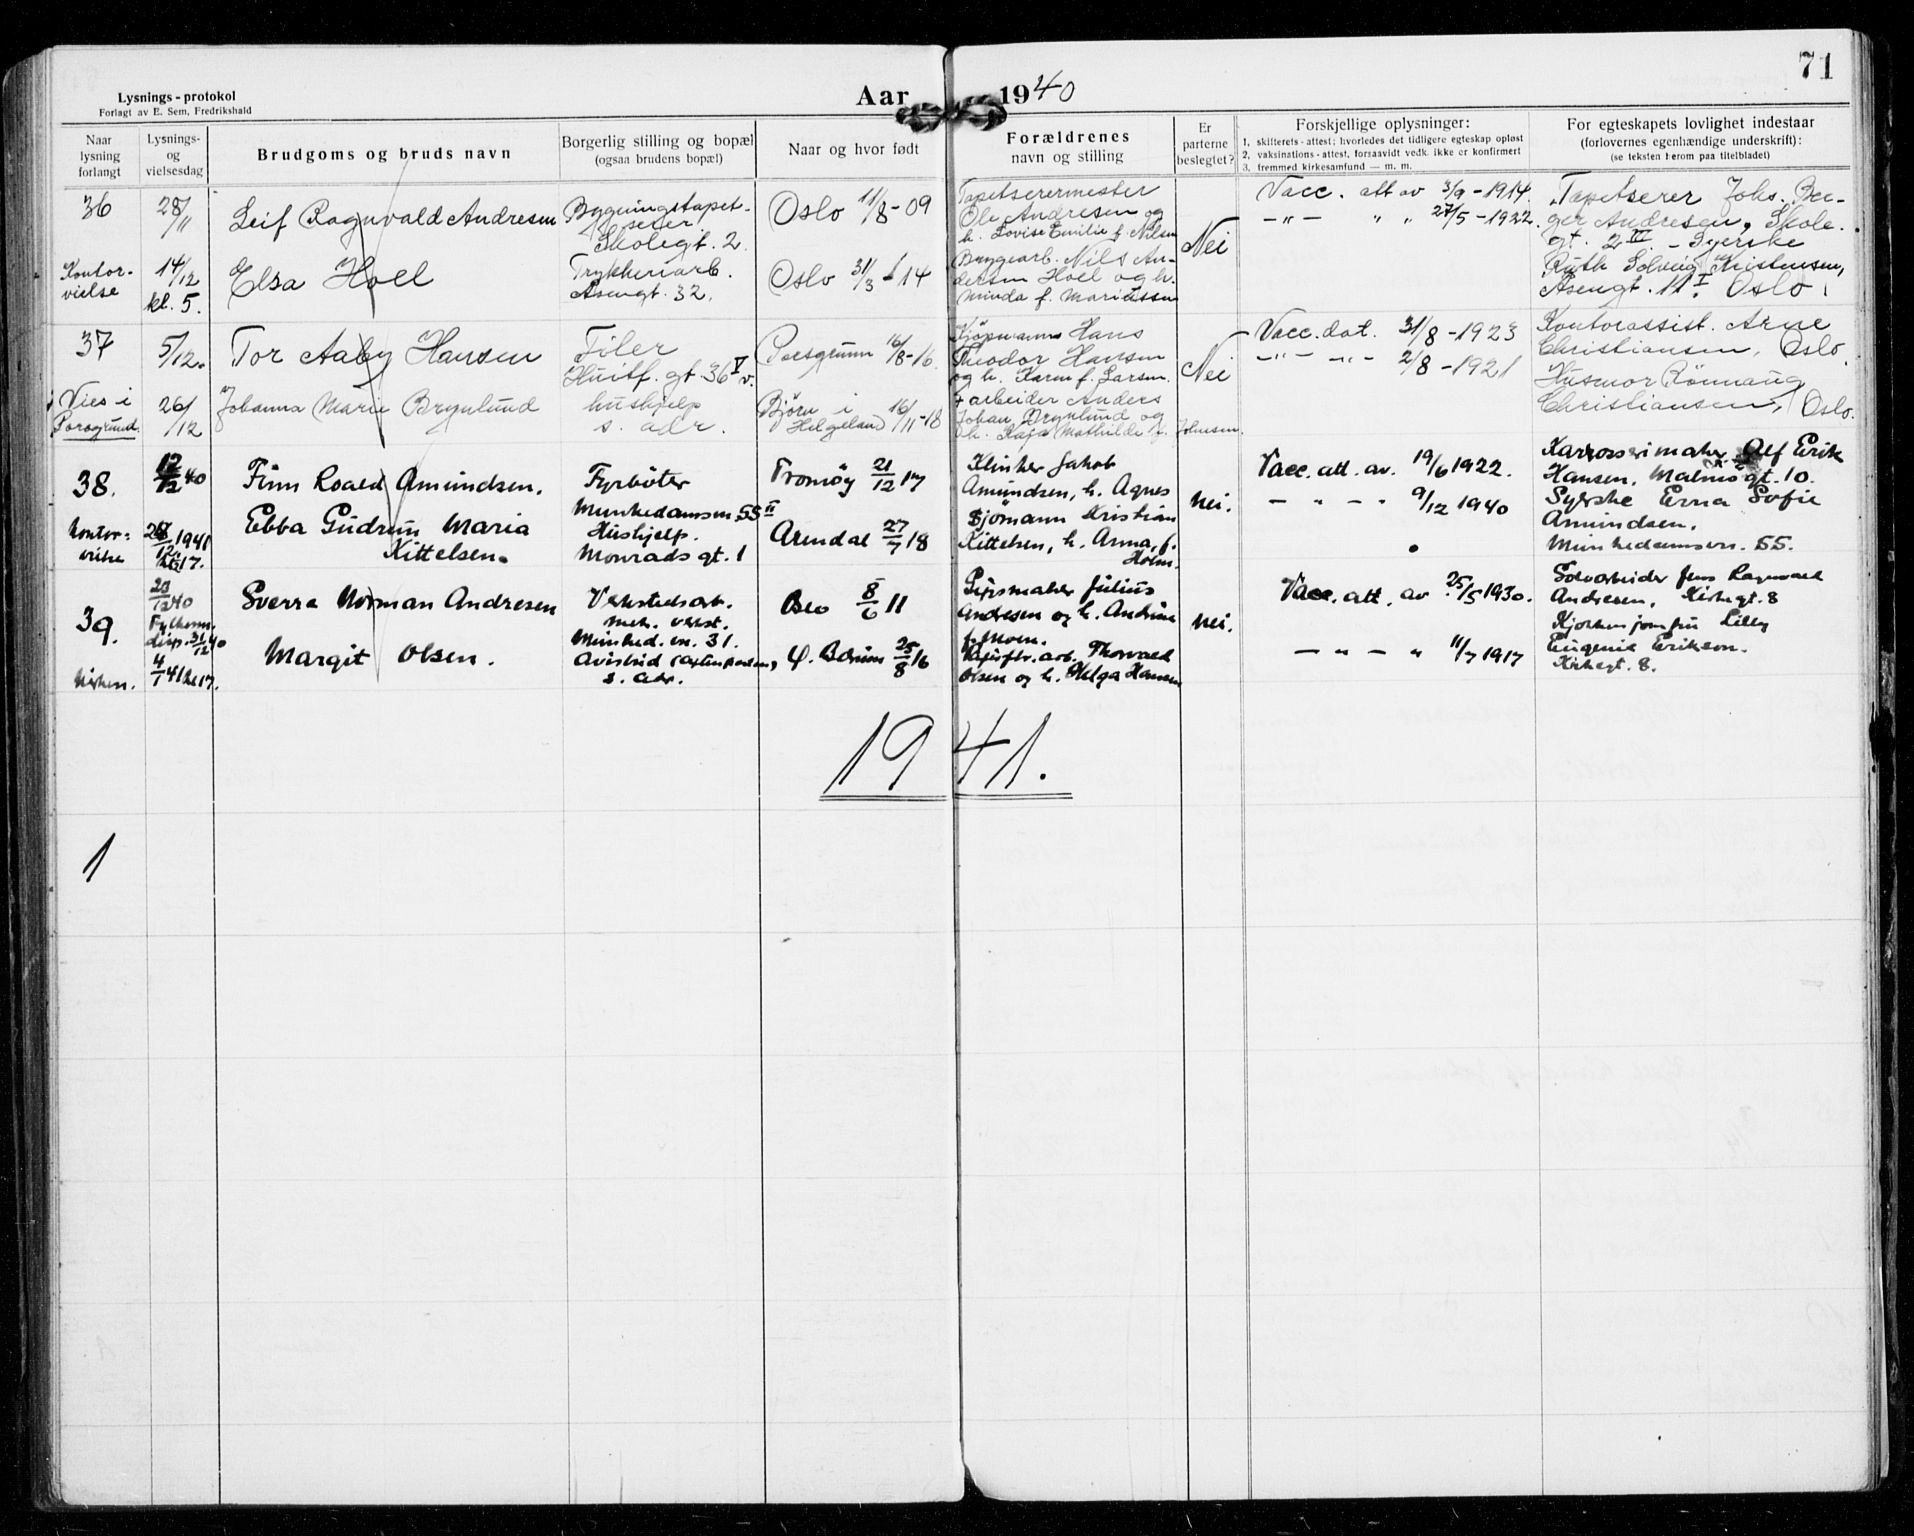 71
Lysnings-protokol
Forlagt av E. Sem, Fredrikshald
Aar 1940
Naar lysning forlangt
Lysnings- og vielsesdag
Brudgoms og bruds navn
Borgerlig stilling og bopæl (ogsaa brudens bopæl)
Naar og hvor født
Forældrenes navn og stilling
Er parterne beslegtet?
Forskjellige oplysninger:
1, skifterets-attest; hvorledes det tidligere egteskap opløst
2, vaksinations-attest, forsaavidt vedk. ikke er konfirmert
3, fremmed kirkesamfund — m. m.
For egteskapets lovlighet indestaar
(forlovernes egenhændige underskrift):
(se teksten herom paa titelbladet)
36
28/11
Leif Ragnvald Andresen
Bygningstapet-
serer.
Skolegt. 2.
Oslo 11/8-09
Tapetserermester
Ole Andresen og
h. Lovise Emilie f. Nilsen
Nei
Vacc. att av 3/9-1914.
-"- " " 27/5-1922.
Tapetserer Johs. Bir-
ger Andresen, Skole-
gt. 2 III - Syerske
Ruth Solveig Kristensen,
Åsengt. 11 I Oslo.
Kontor-
vielse
14/12
kl. 5.
Elsa Hoel
Trykkeriarb.
Åsengt. 32.
Oslo 31/3-14
Bryggearb. Nils An-
dersen Hoel og h.
Minda f. Mariussen
37
5/12.
Tor Aaby Hansen
Filer
Huitf. gt. 36 V v.
Porsgrunn 16/8-16.
Kjøpmann Hans
Theodor Hansen
og h. Karen f. Larsen.
Nei
Vacc. dat. 31/8-1923
-"- -"- 2/8-1921
Kontorassist. Arne
Christiansen, Oslo
Husmor Rönnaug
Christiansen, Oslo.
Vies i
Porsgrund
26/12
Johanna Marie Brynlund
hushjelp
s. adr.
Bjørn i
Helgeland 16/11-18
+ arbeider Anders
Johan Brynlund og
h. Kaja Mathilde f. Johnsen.
38.
12/12 40
Finn Roald Amundsen.
Fyrbøter
Munkedamsvn. 55 II
Tromøy 21/12 17
Klinker Jakob
Amundsen, h. Agnes
Nei.
Vacc. att. av. 19/6 1922.
- " - " 9/12 1940
Karrosserimaker Alf Erik
Hansen, Malmøgt. 10.
Syerske Erna Sofie
Amundsen.
Munkedamsvn. 55.
Kontor-
vielse
1941
kl. 17.
Ebba Gudrun Maria
Kittelsen.
Hushjelp.
Monrads gt. 1
Arendal 27/7 18
Sjømann Kristian
Kittelsen, h. Anna, f.
Holm.
39.
23/12 40
disp. 31/12 40
Sverre Norman Andresen
Verkstedsarb.
mek. verkst.
Munked. vn. 31.
Oslo 8/6 11
Julius
Andresen og h. Andrine
f. Moen.
Nei.
Vacc. att. av 25/5 1930.
- " - " 11/7 1917
Jens Ragnvald
Andresen, Kirkegt. 8
Kjøkkenjomfru Lilly
Eugenie Erikson.
Kirkegt. 8.
Kirken.
4/1 41 kl. 17.
Margit Olsen.
s. adr.
Bærum 25/8 16
Thorvald
Olsen og h. Helga Hansen
1941.
1